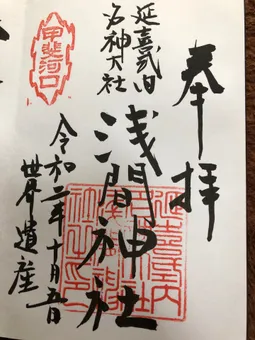 奉拝
延喜式内
名神大社
浅間神社
甲斐河口
令和二年十月五日
世界遺産